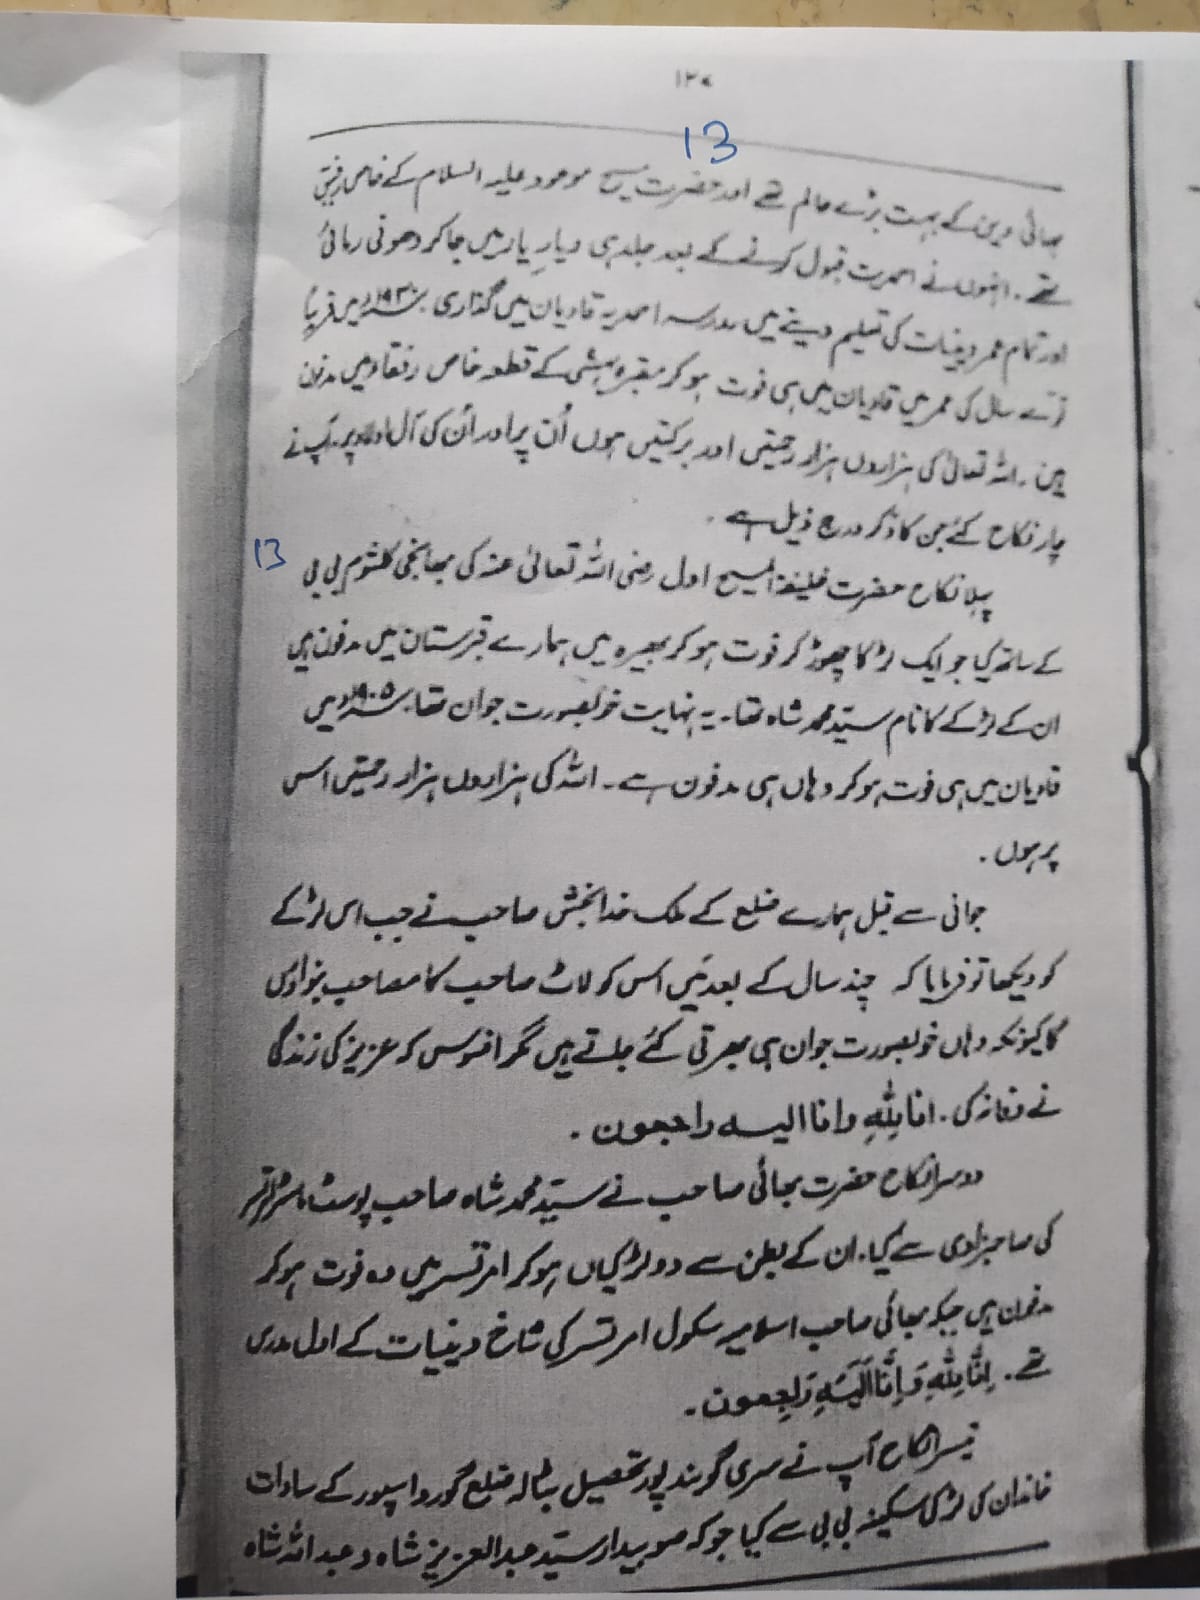 ۱۲۷
13
بھائی دین کے بہت بڑے عالم تھے اور حضرت مسیح موعود علیہ السلام کے خاص رفیق
تھے۔ انہوں نے احمدیت قبول کرنے کے بعد جلد ہی دیارِ یار میں جا کر دھونی رمائی
اور تمام عمر دینیات کی تعلیم دینے میں مدرسہ احمدیہ قادیان میں گذاری۔ میں قریباً
سال کی عمر میں قادیان میں ہی فوت ہو کر مقبرہ بہشتی کے قطعہ خاص رفقاء میں مدفون
ہیں۔ اللہ تعالیٰ کی ہزاروں ہزار رحمتیں اور برکتیں ہوں اُن پر اور اُن کی آل اولاد پر۔ آپ نے
چار نکاح کئے جن کا ذکر درج ذیل ہے۔
13
پہلا نکاح حضرت خلیفۃ المسیح اول رضی اللہ تعالیٰ عنہ کی بھانجی کلثوم بی بی
کے ساتھ کیا جو ایک لڑکا چھوڑ کر فوت ہو کر بھیرہ میں ہمارے قبرستان میں مدفون ہیں
ان کے لڑکے کا نام سیّد محمد شاہ تھا۔ یہ نہایت خوبصورت جوان تھا۔ ۱۹۰۵ء میں
قادیان میں ہی فوت ہو کر وہاں ہی مدفون ہے۔ اللہ کی ہزاروں ہزار رحمتیں اس
پر ہوں۔
جوانی سے قبل ہمارے ضلع کے ملک خدا بخش صاحب نے جب اس لڑکے
کو دیکھا تو فرمایا کہ چند سال کے بعد میں اس کو لاٹ صاحب کا مصاحب بنوا دوں
گا کیونکہ وہاں خوبصورت جوان ہی بھرتی کئے جاتے ہیں مگر افسوس کہ عزیز کی زندگی
نے وفا نہ کی۔ انا للّٰہِ وانا الیہ راجعون۔
دوسرا نکاح حضرت بھائی صاحب نے سیّد محمد شاہ صاحب پوسٹ ماسٹر امرتسر
کی صاحبزادی سے کیا۔ ان کے بطن سے دو لڑکیاں ہو کر امرتسر میں وہ فوت ہو کر
مدفون ہیں جبکہ بھائی صاحب اسلامیہ سکول امرتسر کی شاخ دینیات کے اول مدرس
تھے۔ اِنَّا لِلّٰہِ وَاِنَّا اِلَیْہِ رَاجِعون۔
تیسرا نکاح آپ نے سری گوبند پور تحصیل بٹالہ ضلع گورداسپور کے سادات
خاندان کی لڑکی سکینہ بی بی سے کیا جو کہ صوبیدار سیّد عبدالعزیز شاہ و عبداللہ شاہ